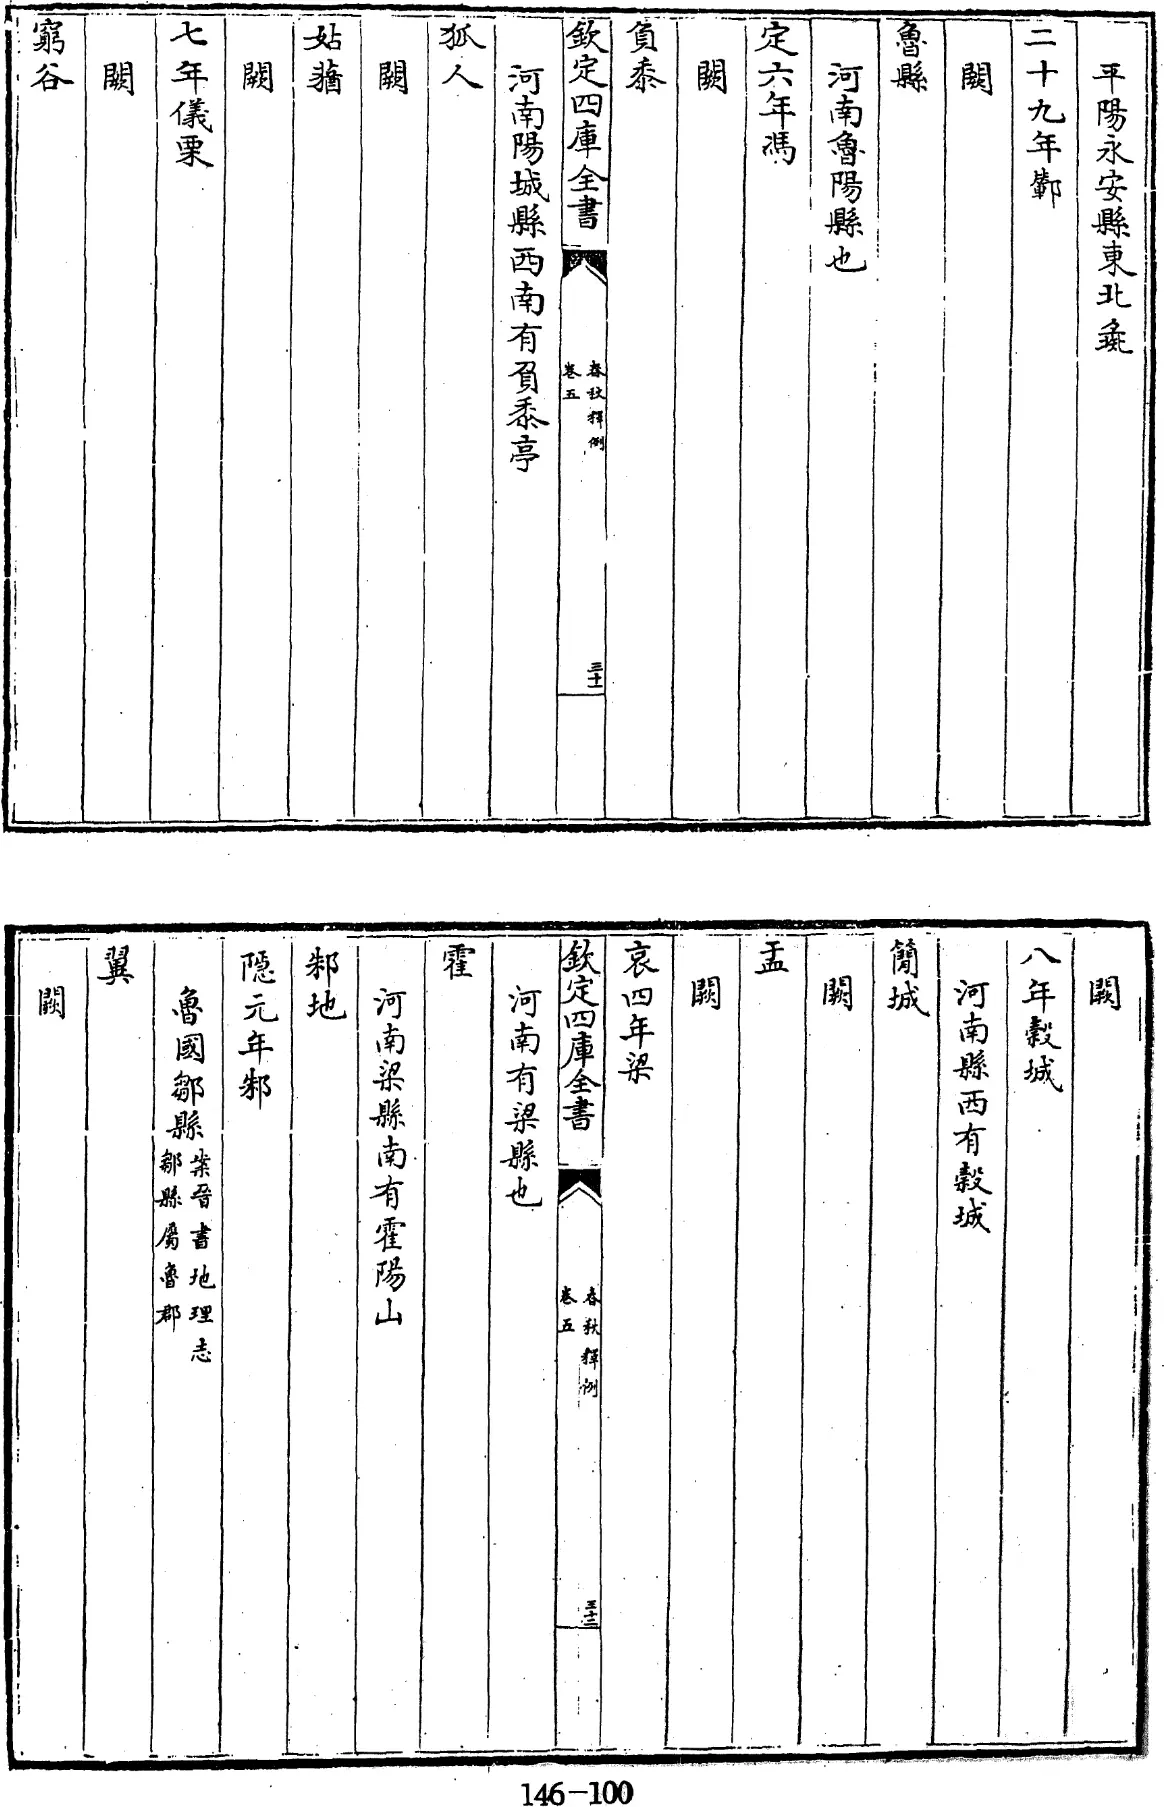 平陽永安縣東北彘
二十九年鄻
闕
魯縣
河南魯陽縣也
定六年馮
闕
負黍
欽定四庫全書
春秋釋例
卷五
三十一
河南陽城縣西南有負黍亭
狐人
闕
姑蕕
闕
七年儀栗
闕
窮谷
闕
八年穀城
河南縣西有穀城
簡城
闕
盂
闕
哀四年梁
欽定四庫全書
春秋釋例
卷五
三十二
河南有梁縣也
霍
河南梁縣南有霍陽山
邾地
隱元年邾
魯國鄒縣
案晉書地理志
鄒縣屬魯郡
翼
闕
146-100